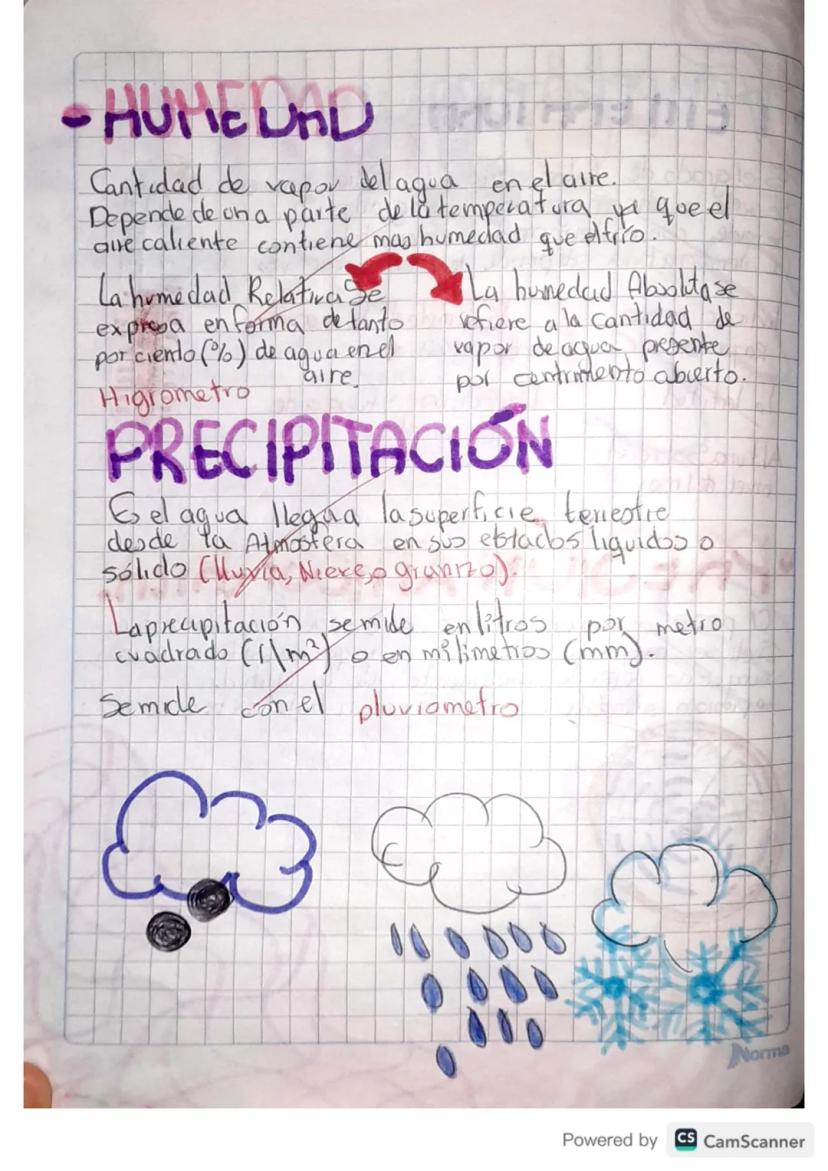 - HUMEDAD
Cantidad de vapor del agua en el aire.
Depende de una parte de la temperatura ya que el
aire caliente contiene mas humedad que el frío.
La humedad Relativa Se
expresa en forma de tanto
por ciento (%) de agua en el
aire.
Higrometro
La humedad Absoluta se
refiere a la cantidad de
vapor de agua presente
por centimento abierto.
PRECIPITACIÓN
Es el agua llegua la superficie terrestre
desde la Atmosfera en sus estados liquidos o
sólido (lluvia, Nieve, o granizo).
La precipitación se mide en litros por metro
cuadrado (l/m²) o en milimetros (mm).
Se mide con el pluviometro
Norma
Powered by CS CamScanner